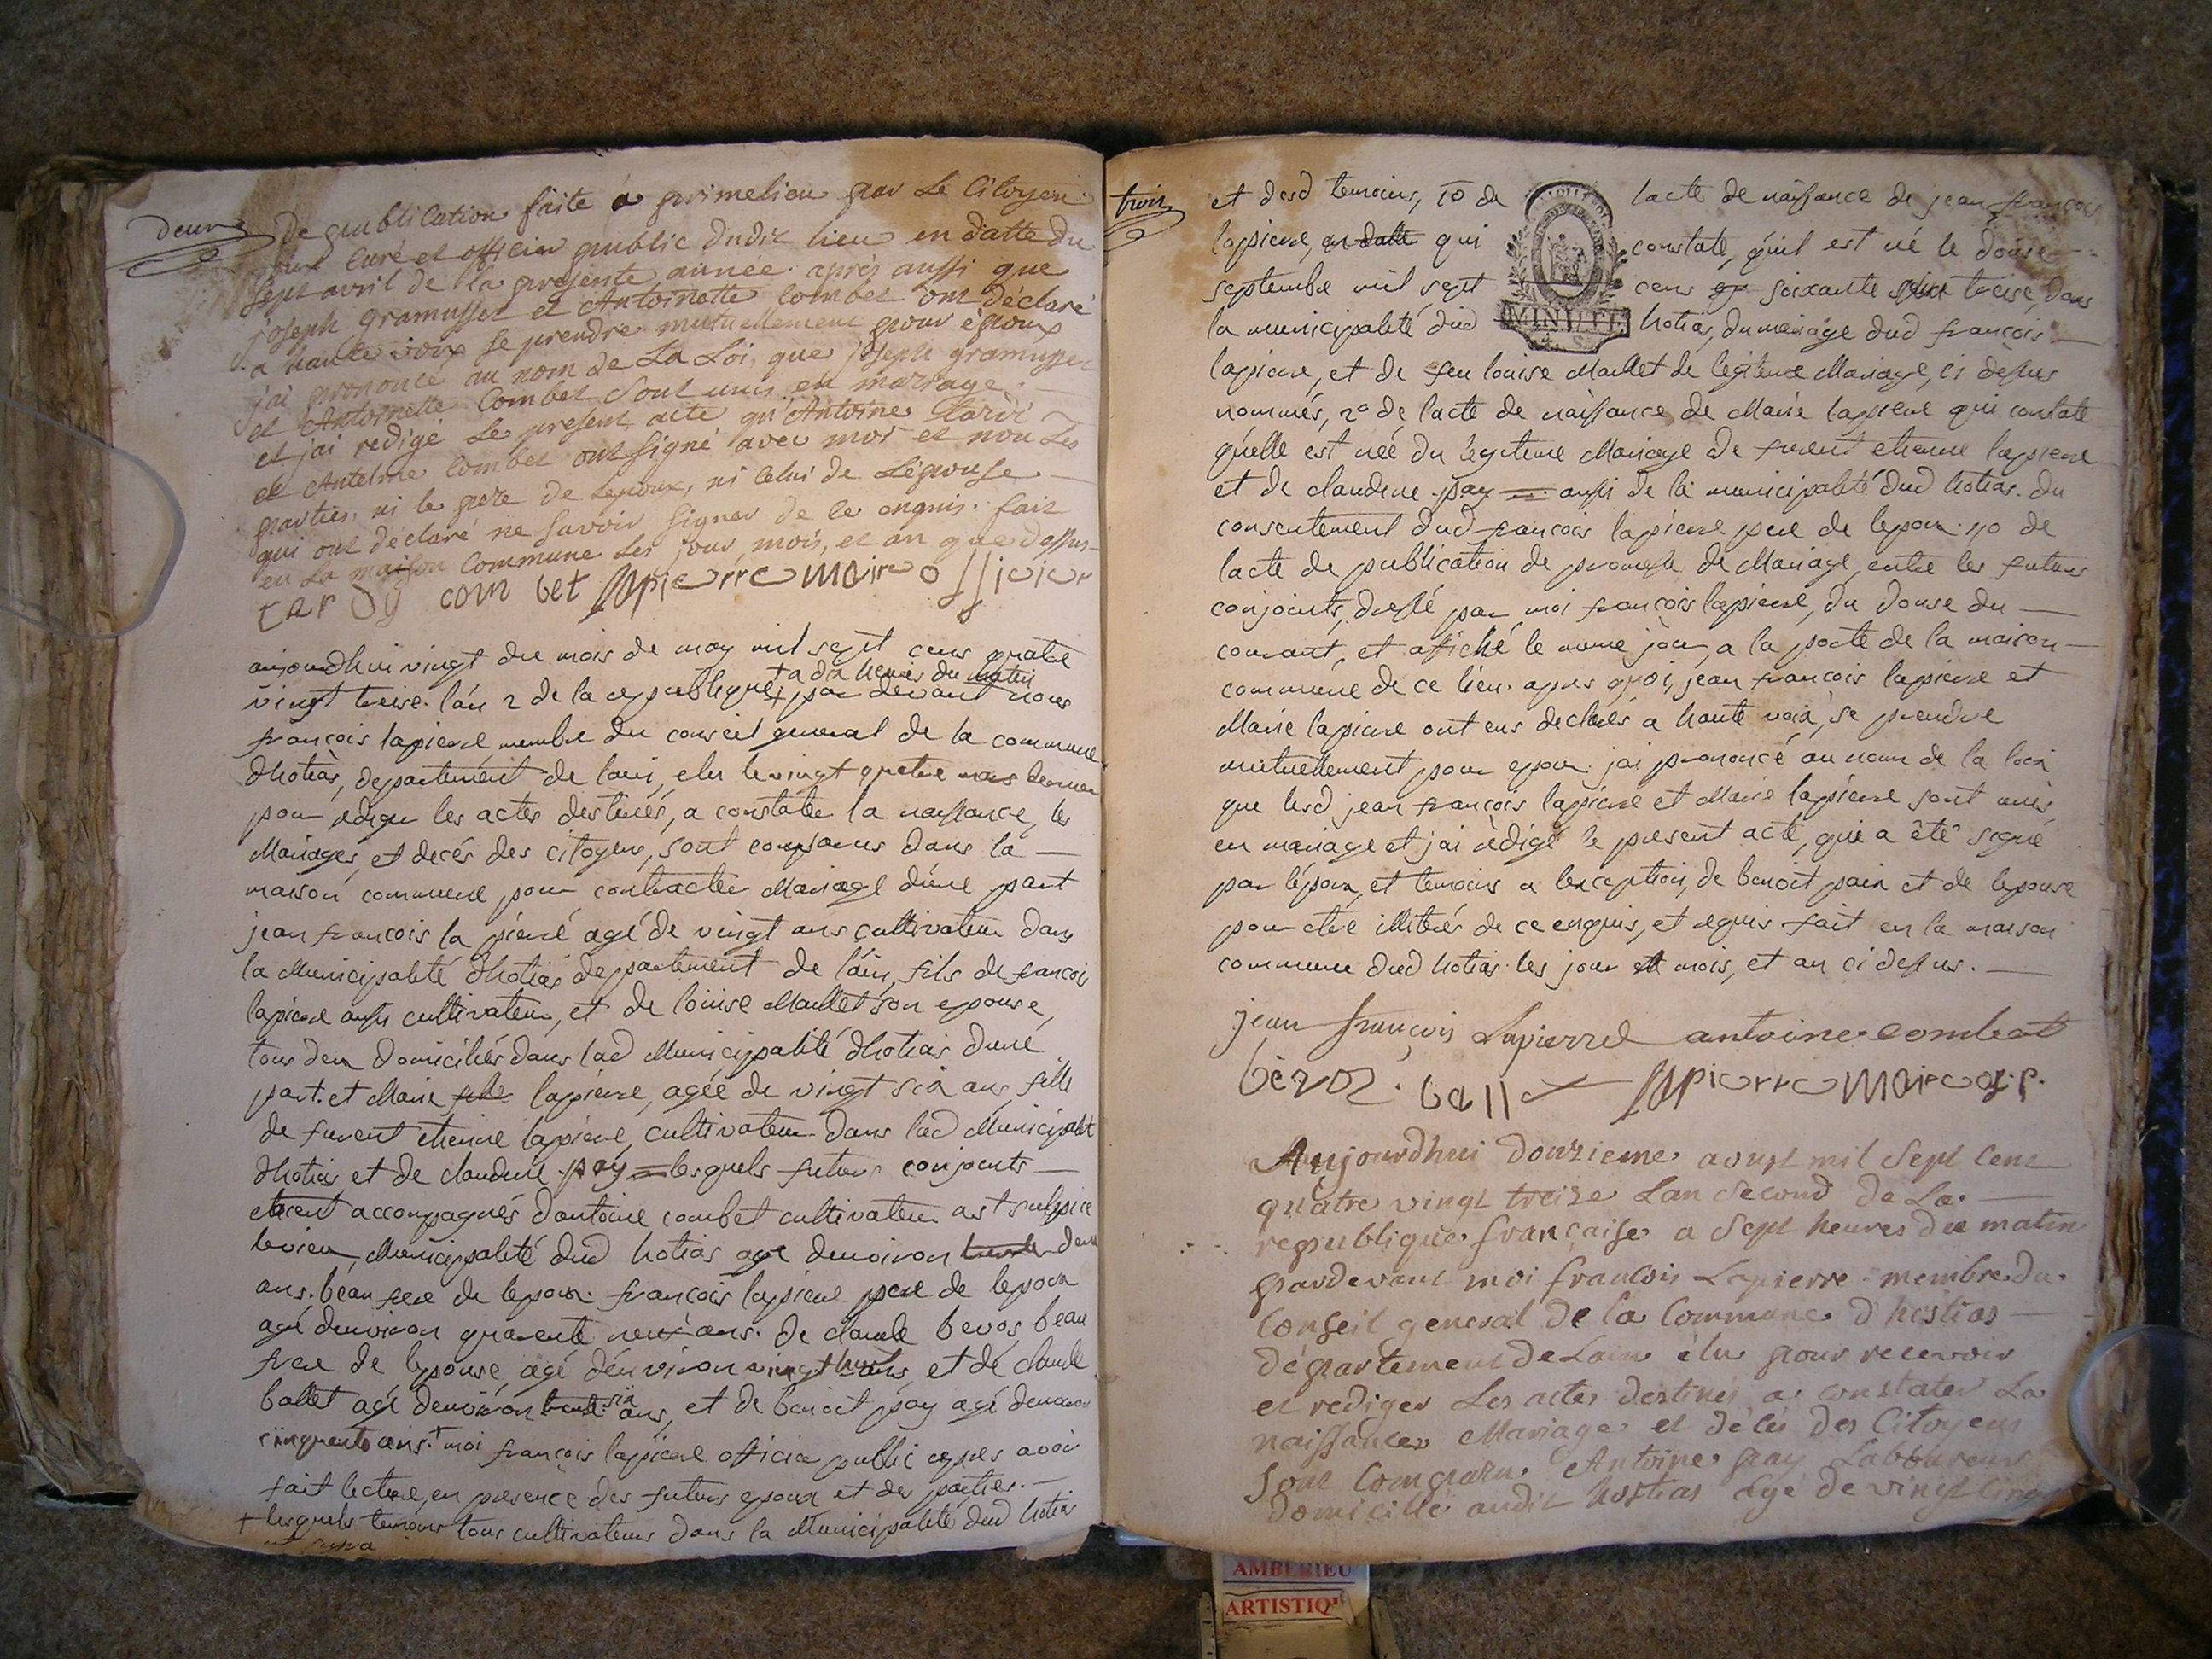 deux
de publication faite a primelieu par Le Citoyen
curé et officier public dudit lieu en datte du
sept avril de la presente année. après aussi que
joseph gramusset et Antoinette Combet ont déclaré
a haute voix se prendre mutuellement pour époux
j'ai prononcé au nom de La Loi, que joseph gramusset
et Antoinette Combet sont unis en mariage.
et j'ai redigé Le present acte qu'Antoine tardi
et Antelme Combet ont signé avec moi et non Les
parties, ni le père de Lepoux, ni Celui de Lépouse
qui ont déclaré ne savoir signer de ce enquis. fait
en La maison Commune Les jour, mois, et an que dessus
tardy combet lapierre maire officier
aujourdhui vingt du mois de may mil sept cens quatre
+ a dix heures du matin
vingt treise. l'an 2 de la republique + par devant nous
françois lapierre membre du conseil general de la commune
dhotias, departement de lain, elu le vingt quatre mars dernier
pour rediger les actes destinés, a constater la naissance, les
Mariages, et decés des citoyens, sont comparus dans la
maison commune pour contracter Mariage d'une part
jean francois la pierre agé de vingt ans cultivateur dans
la Municipalité dhotias departement de l'ain, fils de francois
lapierre aussi cultivateur, et de louise Maillet son epouse,
tous deux domiciliés dans lad Municipalité dhotias dune
part. et Marie fille lapierre, agée de vingt six ans, fille
de furent etienne lapierre, cultivateur dans lad Municipalité
dhotias et de claudine pay lesquels futurs conjoints
etoient accompagnés dantoine combet cultivateur a st sulpice
levieux, Municipalité dud hotias agé denviron trente deux
ans. beau frere de lepoux. françois lapierre pere de lepoux
agé denviron quarente neuf ans. de claude bevoz beau
frere de lepouse, agé denviron vingt huit ans, et de claude
ballet agé denviron trente six ans, et de benoit pay agé denviron
cinquante ans. + moi françois lapierre officier public apres avoir
fait lecture, en presence des futurs epoux et des parties.
+ lesquels temoins tous cultivateurs dans la Municipalité dud hotias
trois
et desd temoins, 1o de lacte de naissance de jean françois
lapierre, en datte qui constate, quil est né le douse
septembre mil sept cens soixante treise, dans
la municipalité dud hotias, du mariage dud françois
MINUTE
lapierre, et de feu louise Maillet de legitime Mariage, ci dessus
nommés, 2o de lacte de naissance de Marie lapierre qui constate
quelle est née du legitime Mariage de furent etienne lapierre
et de claudine pay aussi de la municipalité dud hotias. du
consentement dud francois lapierre pere de lepoux. de
lacte de publication de promesse de Mariage, entre les futurs
conjoints, dressé par moi françois lapierre, du douse du
courant, et affiché le meme jour, a la porte de la maison
commune de ce lieu. apres quoi, jean françois lapierre et
Marie lapierre ont eus declarés a haute voix, se prendre
mutuellement pour epoux. jai prononcé au nom de la loix
que lesd jean françois lapierre et Marie lapierre sont unis
en mariage et jai rédigé le present acte, qui a été signé
par lépoux, et temoins a lexception, de benoit paix et de lepouse
pour etre illitérés de ce enquis, et requis fait en la maison
commune dud hotias les jour et mois, et an ci dessus.
jean françois Lapierre antoine combet
bevoz. ball lapierre maire
Aujourdhui douzieme aoust mil Sept Cent
quatre vingt treize Lan Second de La
republique française a Sept heures du matin
pardevant moi francois Lapierre membre du
Conseil general de la Commune d'hostias
département de Lain élu pour recevoir
et rediger Les actes destinés a constater La
naissances Mariage et décès des Citoyens
Sont Comparu Antoine pay Laboureur
domicilié audit hostias agé de vingt Cinq
AMBERIEU
ARTISTIQ